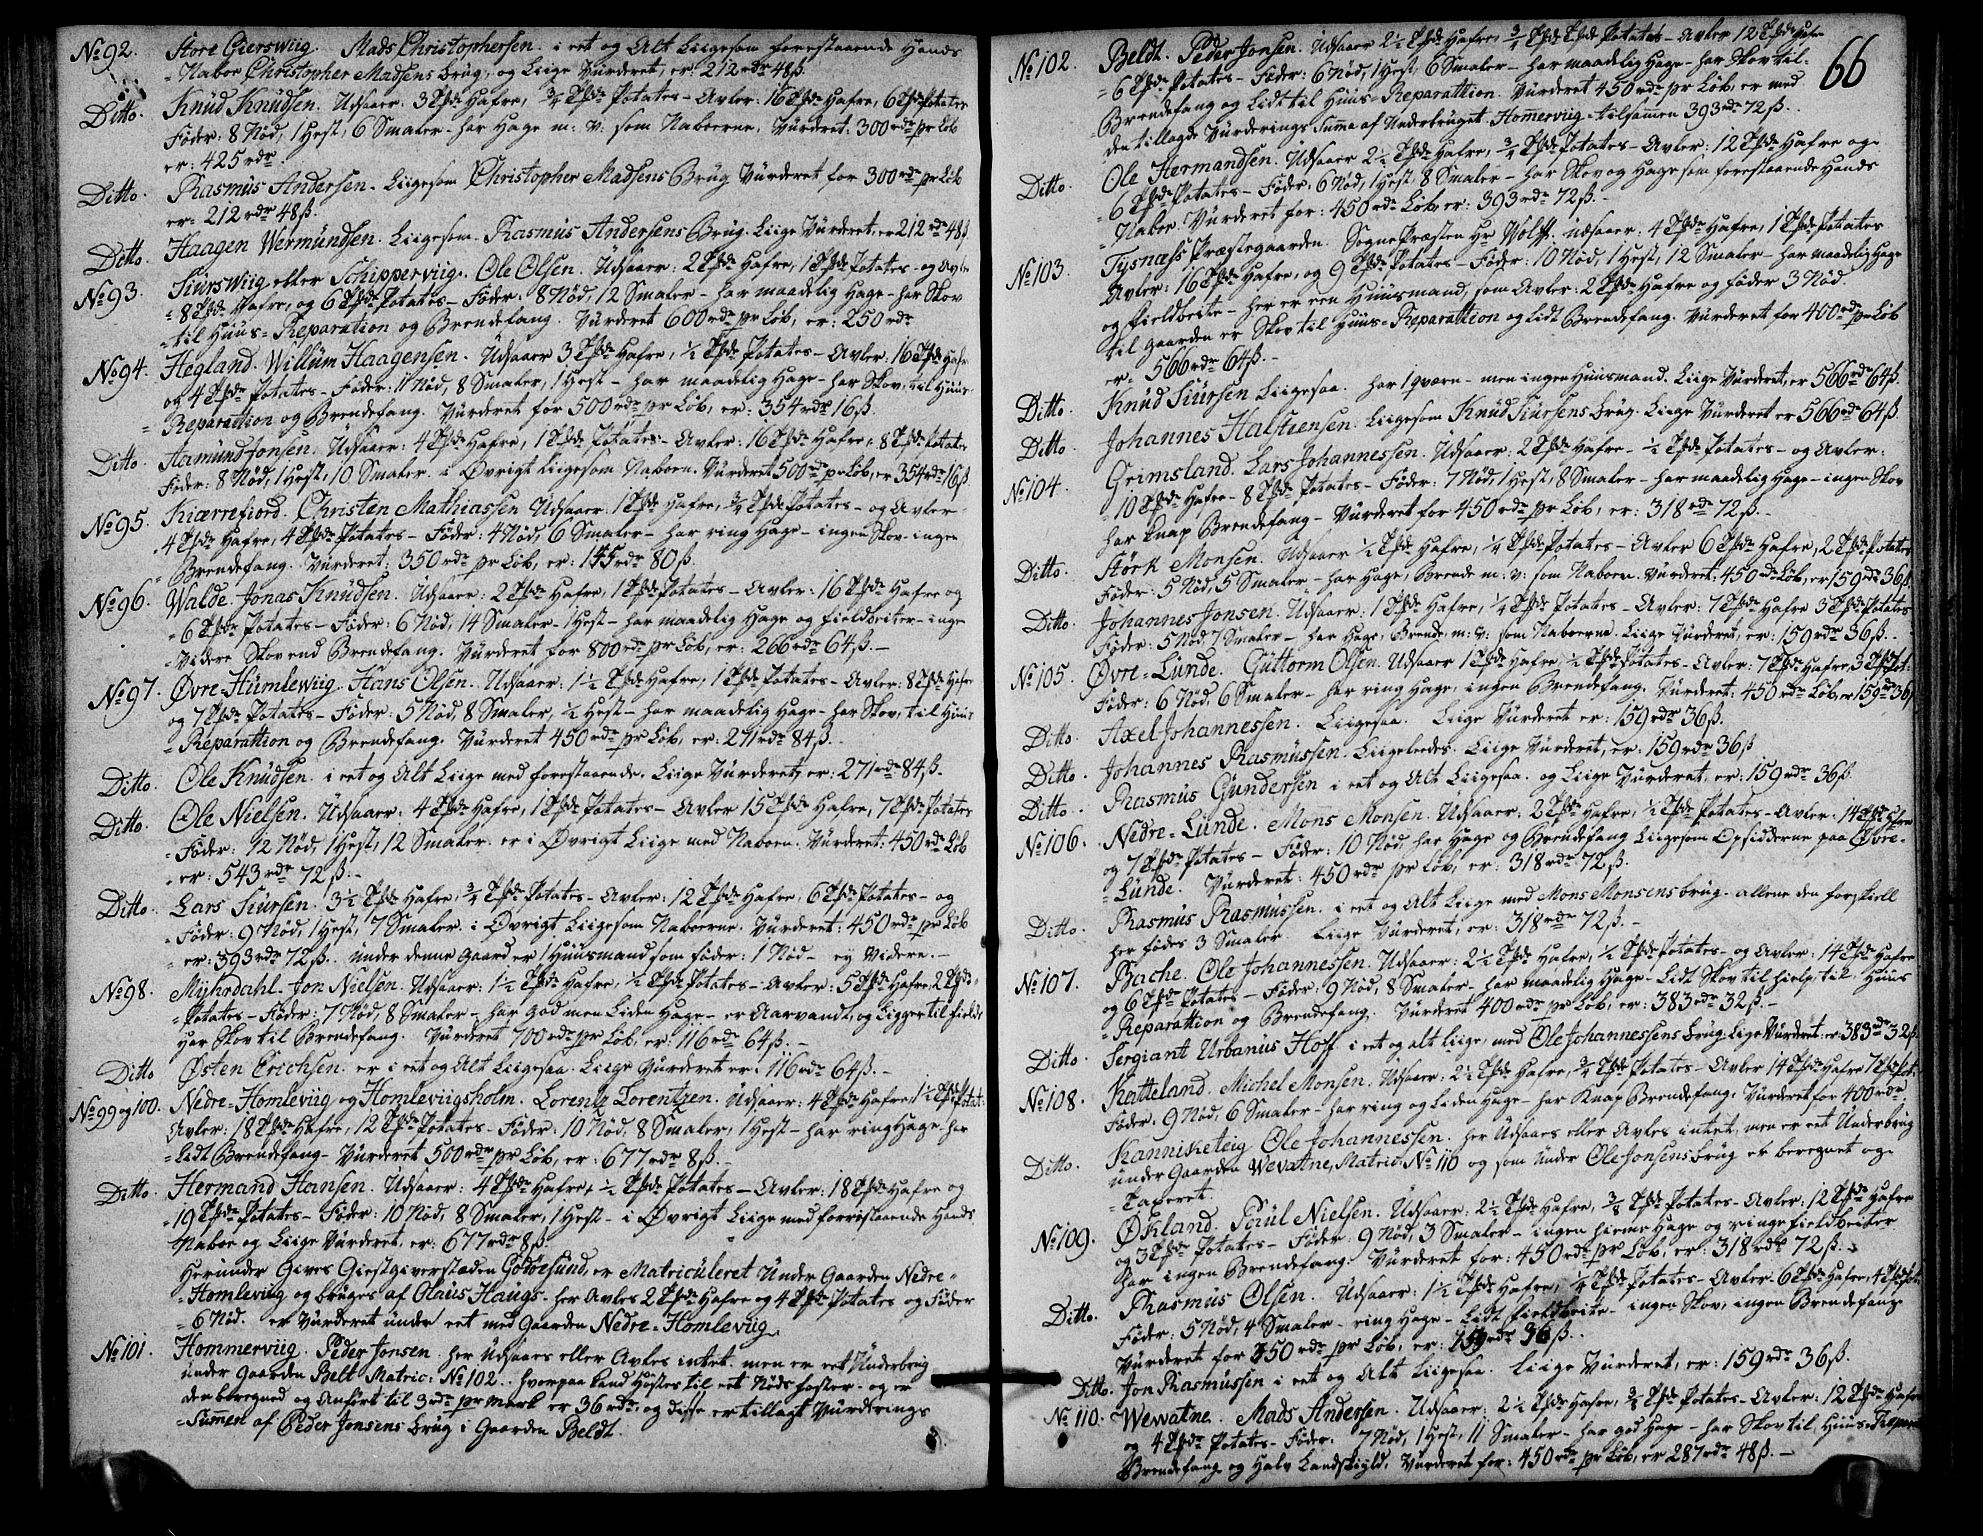 No 92. Store Gierswiig. Mads Christophersen. i eet og Alt Liigesom forestaaende Hands
= Naboe Christopher Madsens brug, og Liige Vurderet, er: 212 rdr 48 ß.
Ditto. Knud Knudsen. Udsaaer: 3 Tpde Hafre, 3/4 Tpde Potates – Avler: 16 Tpde Hafre, 6 Tpde Potates
Føder: 8 Nød, 1 Hest, 6 Smaler – har Hage m: v: som Naboerne. Vurderet: 300 rdr pr Løb
er: 425 rdr
Ditto. Rasmus Andersen. Liigesom Christopher Madsens Brug Vurderet for 300 rdr pr Løb
er: 212 rdr 48 ß.
Ditto. Haagen Wermundsen. Liigesom Rasmus Andersens Brug. Liige Vurderet, er 212 rdr 48 ß
No 93. Siurs Wiig eller Schipperviig. Ole Olsen. Udsaaer: 2 Tpde Hafre, 1 Tpde Potates – og Avler
= 8 Tpde Hafre, og 6 Tpde Potates – Føder: 8 Nød, 12 Smaler – har maadelig Hage – har Skov
= til Huus = Reparation og Brendefang. Vurderet 600 rdr pr Løb, er: 250 rdr
No 94. Hegland. Willum Haagensen. Udsaaer 3 Tpde Hafre, 1/2 Tpde Potates – Avler: 16 Tpde Hafre
og 4 Tpde Potates – Føder: 11 Nød, 8 Smaler, 1 Hest – har maadelig Hage – har Skov, til Huus
= Reparattion og Brendefang. Vurderet for 500 rdr pr Løb, er: 354 rdr 16 ß.
Ditto. Aamund Jonsen. Udsaaer: 4 Tpde Hafre, 1 Tpde Potates – Avler: 16 Tpde Hafre, 8 Tpde Potates
Føder: 8 Nød, 1 Hest, 10 Smaler. i Øvrigt Liigesom Naboen. Vurderet 500 rdr pr Løb, er 354 rdr 16 ß.
No 95. Kiærrefiord. Christen Mathiassen Udsaaer: 1 Tpde Hafre, 3/4 Tpde Potates – og Avler
4 Tpde Hafre, 4 Tpde Potates – Føder: 4 Nød, 6 Smaler – har ring Hage – ingen Skov – ingen
= Brendefang. Vurderet: 350 rdr pr Løb, er: 145 rdr 80 ß.
No 96. Walde. Jonas Knudsen. Udsaaer: 2 Tpde Hafre, 1 Tpde Potates – Avler: 16 Tpde Hafre og
= 6 Tpde Potates – Føder: 6 Nød, 14 Smaler – 1 Hest – har maadelig Hage og fieldbeiter – ingen
= Videre Skov end Brendefang. Vurderet for 800 rdr pr Løb, er: 266 rdr 64 ß. –
No 97. Øvre = Humlewiig. Hans Olsen. Udsaaer: 1 1/2 Tpde Hafre, 1 Tpde Potates – Avler: 8 Tpde Hafre
og 7 Tpde Potates – Føder: 5 Nød, 8 Smaler, 1/2 Hest – har maadelig Hage – har Skov, til Huus
= Reparattion og Brendefang. Vurderet 450 rdr pr Løb, er: 271 rdr 84 ß.
Ditto. Ole Knudsen. i eet og Alt Liige med forestaaende. Liige Vurderet, er: 271 rdr 84 ß.
Ditto. Ole Nielsen. Udsaaer: 4 Tpde Hafre, 1 Tpde Potates – Avler 15 Tpde Hafre, 7 Tpde Potates
= Føder: 12 Nød, 1 Hest, 12 Smaler. er i Øvrigt Liige med Naboen. Vurderet: 450 rdr Løb
= er: 543 rdr 72 ß. –
Ditto. Lars Siursen. 3 1/2 Tpde Hafre, 3/4 Tpde Potates – Avler: 12 Tpde Hafre, 6 Tpde Potates – og
= Føder: 9 Nød, 1 Hest, 7 Smaler. i Øvrigt Liigesom Naboerne. Vurderet: 450 rdr pr Løb
= er: 393 rdr 72 ß. under denne Gaard er 1 Huusmand som føder: 1 Nød – ey Videre. –
No 98. Myhrdahl. Jon Nielsen. Udsaaer: 1 1/2 Tpde Hafre, 1/2 Tpde Potates – Avler: 5 Tpde Hafre 2 Tpde
= Potates – Føder: 7 Nød, 8 Smaler – har god men Liden Hage – er Aarvandt, og Ligger til fields
har Skov til Brendefang. Vurderet 700 rdr pr Løb, er: 116 rdr 64 ß. –
Ditto Østen Erichsen. er i eet og Alt Liigesaa. Liige Vurderet er: 116 rdr 64 ß. –
No 99 og 100. Nedre = Homleviig og Homleviigsholm. Lorentz Lorentzen. Udsaaer: 4 Tpde Hafre, 1 1/2 Tpde Potat:
Avler: 18 Tpde Hafre, 12 Tpde Potates – Føder: 10 Nød, 8 Smaler, 1 Hest – har ring Hage – har
= Lidt Brendefang – Vurderet 500 rdr pr Løb, er: 677 rdr 8 ß. –
Ditto. Hermand Hansen. Udsaaer: 4 Tpde Hafre, 1/2 Tpde Potates – Avler: 18 Tpde Hafre og
= 19 Tpde Potates – Føder: 10 Nød, 8 Smaler, 1 Hest – i Øvrigt Liige med forrestaaende Hands
Naboe og Liige Vurderet, er: 677 rdr 8 ß.
Herunder Gives Giestgiverstæden Godøesund, er Matriculeret Under Gaarden Nedre =
= Homleviig og bruges af Olaus Haugs. her Avles 2 Tpde Hafre og 4 Tpde Potates og Føder
= 6 Nød. er Vurderet under eet med Gaarden Nedre = Homleviig
No 101. Hommerviig. Peder Jonsen. her Udsaaes eller Avles intet. men er eet Underbrug
under Gaarden Belt Matric: No 102. hvorpaa kand Høstes til eet Nøds foster – og er
den beregned og Anført til 3 rdr pr mark er 36 rdr og disse er tillagt Vurderings
= Sumen af Peder Jonsens brug i Gaarden Beldt.
66
No 102. Beldt. Peder Jonsen. Udsaaer 2 1/2 Tpde Hafre, 3/4 Tpde Potates – Avler 12 Tpde Hafre
= 6 Tpde Potates – Føder: 6 Nød, 1 Hest, 6 Smaler – har maadelig Hage – har Skov til =
Brendefang og Lidt til Huus = Reparattion. Vurderet 450 rdr pr Løb, er med
den tillagde Vurderings Summa af Underbruget Homerviig – tilsamen 393 rdr 72 ß.
Ditto. Ole Hermandsen. Udsaaer 2 1/2 Tpde Hafre, 3/4 Tpde Potates – Avler: 12 Tpde Hafre og
= 6 Tpde Potates – Føder: 6 Nød, 1 Hest, 8 Smaler – har Skov og Hage som forestaaende Hands
= Naboe. Vurderet for: 450 rdr Løb, er: 393 rdr 72 ß. –
No 103. Tysnæss Præstegaarden. Sogne Præsten Hr Wolff. udsaaer: 4 Tpde Hafre, 1 Tpde Potates
Avler: 16 Tpde Hafre, og 9 Tpde Potates – Føder: 10 Nød, 1 Hest, 12 Smaler – har maadelig Hage
og fieldbeite – her er een Huusmand, som Avler: 2 Tpde Hafre og føder 3 Nød.
til gaarden er Skov til Huus = Reparattion og Lidt Brendefang. Vurderet for 400 rdr pr Løb
er = 566 rdr 64 ß. –
Ditto. Knud Siursen Liigesaa. har 1 qværn – men ingen Huusmand. Liige Vurderet, er 566 rdr 64 ß.
Ditto. Johannes Halstensen. Liigesom Knud Siursens brug. Liige Vurderet er 566 rdr 64 ß.
No 104. Grimsland. Lars Johannessen. Udsaaer: 2 Tpde Hafre – 1/2 Tpde Potates – og Avler:
= 10 Tpde Hafre – 8 Tpde Potates – Føder: 7 Nød, 1 Hest, 8 Smaler – har maadelig Hage – ingen Skov
har knap Brendefang – Vurderet for 450 rdr pr Løb, er: 318 rdr 72 ß. –
Ditto. Størk Monsen. Udsaaer 1/2 Tpde Hafre, 1/4 Tpde Potates – Avler 6 Tpde Hafre, 2 Tpde Potates
Føder: 5 Nød, 5 Smaler – har Hage, Brende m: v: som Naboen. Vurderet: 450 rdr Løb, er 159 rdr 36 ß
Ditto. Johannes Jonsen. Udsaaer: 1 Tpde Hafre, 1/4 Tpde Potates – Avler: 7 Tpde Hafre 3 Tpde Potates
Føder: 5 Nød 7 Smaler – har Hage, Brende m: v: som Naboerne. Liige Vurderet, er: 159 rdr 36 ß. –
No 105. Øvre = Lunde. Guttorm Olsen. Udsaaer 1 Tpde Hafre, 1/2 Tpde Potates – Avler: 7 Tpde Hafre, 3 Tpde Pot:
Føder: 6 Nød, 6 Smaler – har ring Hage, ingen Brendefang. Vurderet: 450 rdr Løb, er 159 rdr 36 ß
Ditto. Axel Johannessen. Liigesaa. Liige Vurderet er: 159 rdr 36 ß.
Ditto. Johannes Rasmussen. Liigeleedes. Liige Vurderet, er: 159 rdr 36 ß
Ditto. Rasmus Gundersen i eet og Alt Liigesaa. og Liige Vurderet, er: 159 rdr 36 ß.
No 106. Nedre = Lunde. Mons Monsen. Udsaaer: 2 Tpde Hafre, 1/2 Tpde Potates – Avler: 14 Tpde Hafre
og 7 Tpde Potates – Føder: 10 Nød, har Hage og Brendefang Liigesom Opsidderne paa Øvre =
= Lunde. Vurderet: 450 rdr pr Løb, er: 318 rdr 72 ß.
Ditto. Rasmus Rasmussen. i eet og Alt Liige med Mons Monsens brug – allene den forskiell
her fødes 3 Smaler Liige Vurderet, er: 318 rdr 72 ß. –
No 107. Bache. Ole Johannessen. Udsaaer: 2 1/2 Tpde Hafre, 1/2 Tpde Potates – og Avler: 14 Tpde Hafre
og 6 Tpde Potates – Føder: 9 Nød, 8 Smaler – har maadelig Hage – Lidt Skov til hielp, til Huus
= Reparattion og Brendefang. Vurderet 400 rdr pr Løb, er: 383 rdr 32 ß. –
Ditto. Sergiant Urbanus Hoff. i eet og alt Liige, med Ole Johannessens brug, Lige Vurderet: er 383 rdr 32 ß.
No 108. Katteland. Michel Monsen. Udsaaer: 2 1/2 Tpde Hafre, 3/4 Tpde Potates – Avler 14 Tpde Hafre 7 Tpde Pot:
Føder: 9 Nød, 6 Smaler – har ring og Liden Hage – har Knap Brendefang. Vurderet for 400 rdr
Ditto. Kanniketeig Ole Johannessen. her Udsaaes eller Avles intet, men er eet Underbrug
under Gaarden Wevatne, Matric: No 110 og som under Ole Jonsens brug er beregnet og =
= Taxeret.
No 109. Økland. Poul Nielsen. Udsaaer: 2 1/2 Tpde Hafre, 3/8 Tpde Potates – Avler: 12 Tpde Hafre
og 3 Tpde Potates – Føder: 9 Nød, 3 Smaler – ingen hieme Hage og ringe fieldbeiter
har ingen Brendefang. Vurderet for: 450 rdr pr Løb, er: 318 rdr 72 ß.
Ditto. Rasmus Olsen. Udsaaer: 1 1/2 Tpde Hafre, 1/4 Tpde Potates – Avler – 6 Tpde Hafre, 4 Tpde Potates
Føder: 5 Nød, 4 Smaler – ring Hage – Lidt fieldbeite – ingen Skov, ingen Brendefang
Vurderet for 450 rdr pr Løb, er: 159 rdr 36 ß.
Ditto. Jon Rasmussen i eet og Alt Liigesaa. Liige Vurderet, er: 159 rdr 36 ß.
No 110. Wewatne. Mads Andersen. Udsaaer: 2 1/2 Tpde Hafre, 3/4 Tpde Potates – Avler: 12 Tpde Hafre
og 4 Tpde Potates – Føder: 7 Nød, 1 Hest, 11 Smaler – har god Hage – har Skov til Huus = Repara
Brendefang og Halv Landskyld. Vurderet for: 450 rdr pr Løb, er 287 rdr 48 ß. –